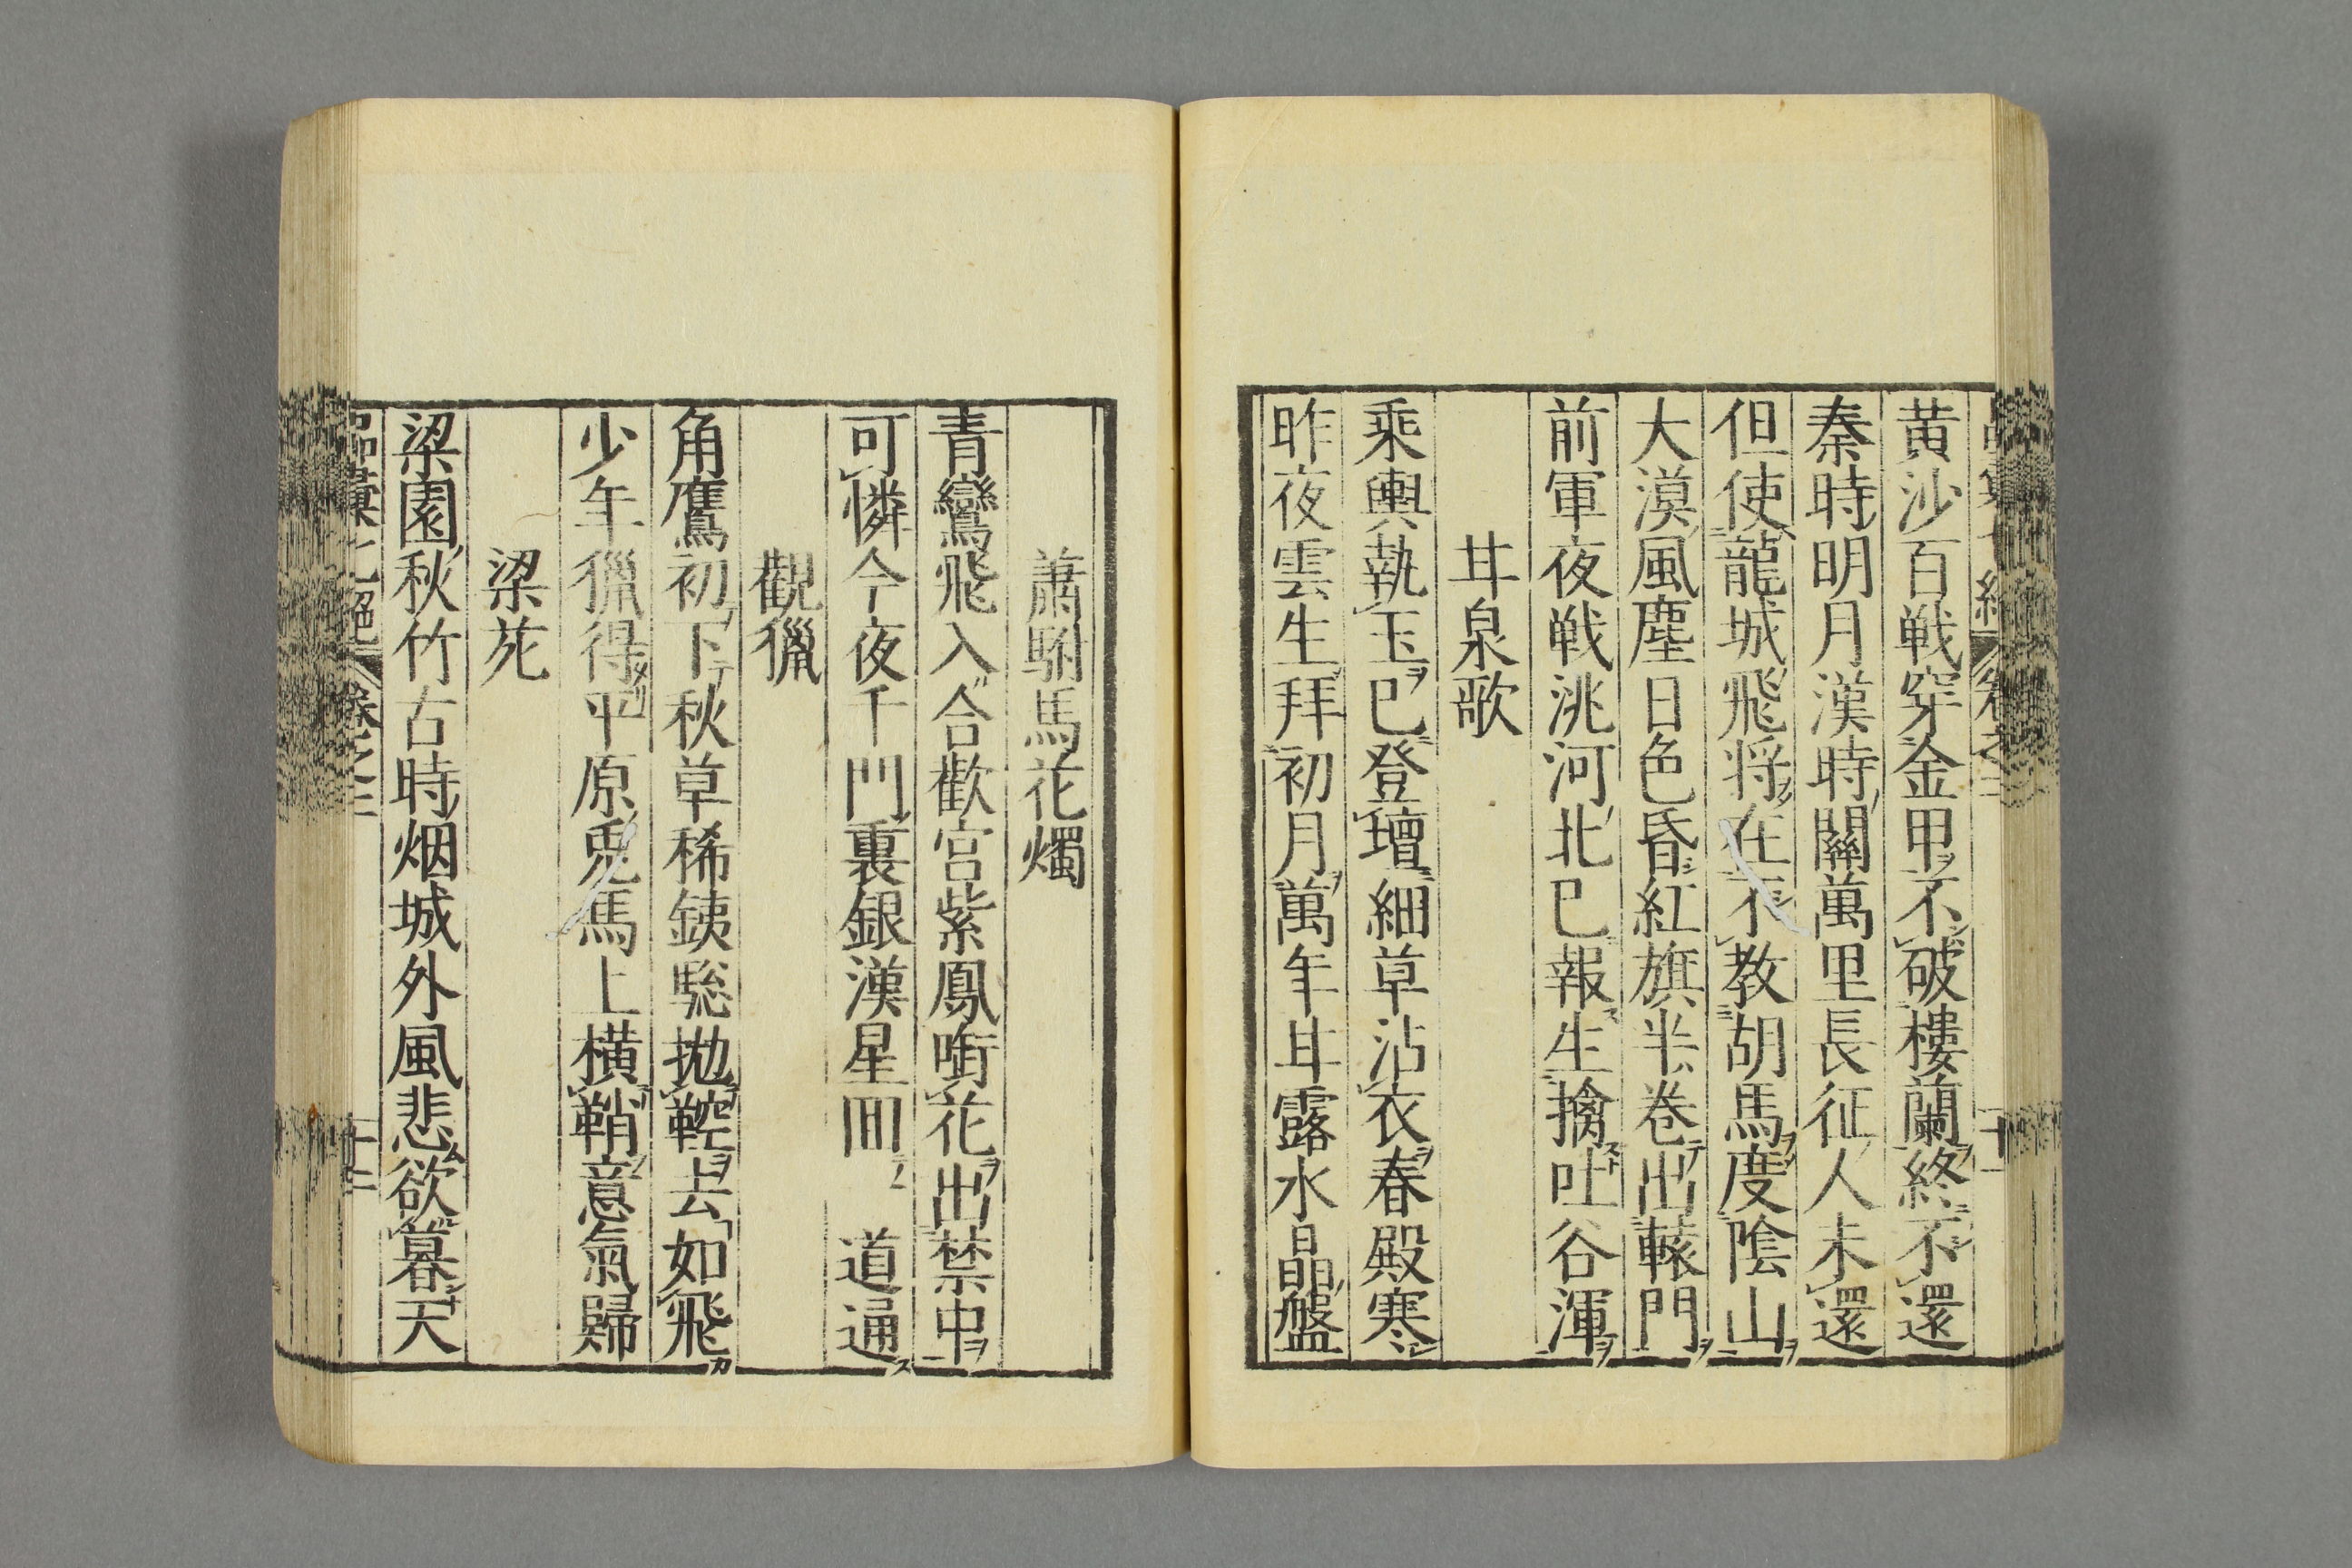 黄沙百戦穿金甲不破樓蘭終不還
秦時明月漢時關萬里長征人未還
但使龍城飛将在不教胡馬度陰山
大漠風塵日色昏紅旗半卷出轅門
前軍夜戦洮河北已報生擒吐谷渾
甘泉歌
乘輿執玉已登壇細草沾衣春殿寒
昨夜雲生拜初月萬年甘露水晶盤
蕭駙馬花燭
青鸞飛入合歡宮紫鳳啣花出禁中
可憐今夜千門裏銀漢星回一道通
觀獵
角鷹初下秋草稀鉄騘拋鞚去如飛
少年獵得平原兎馬上横鞘意氣歸
梁苑
梁園秋竹古時烟城外風悲欲暮天